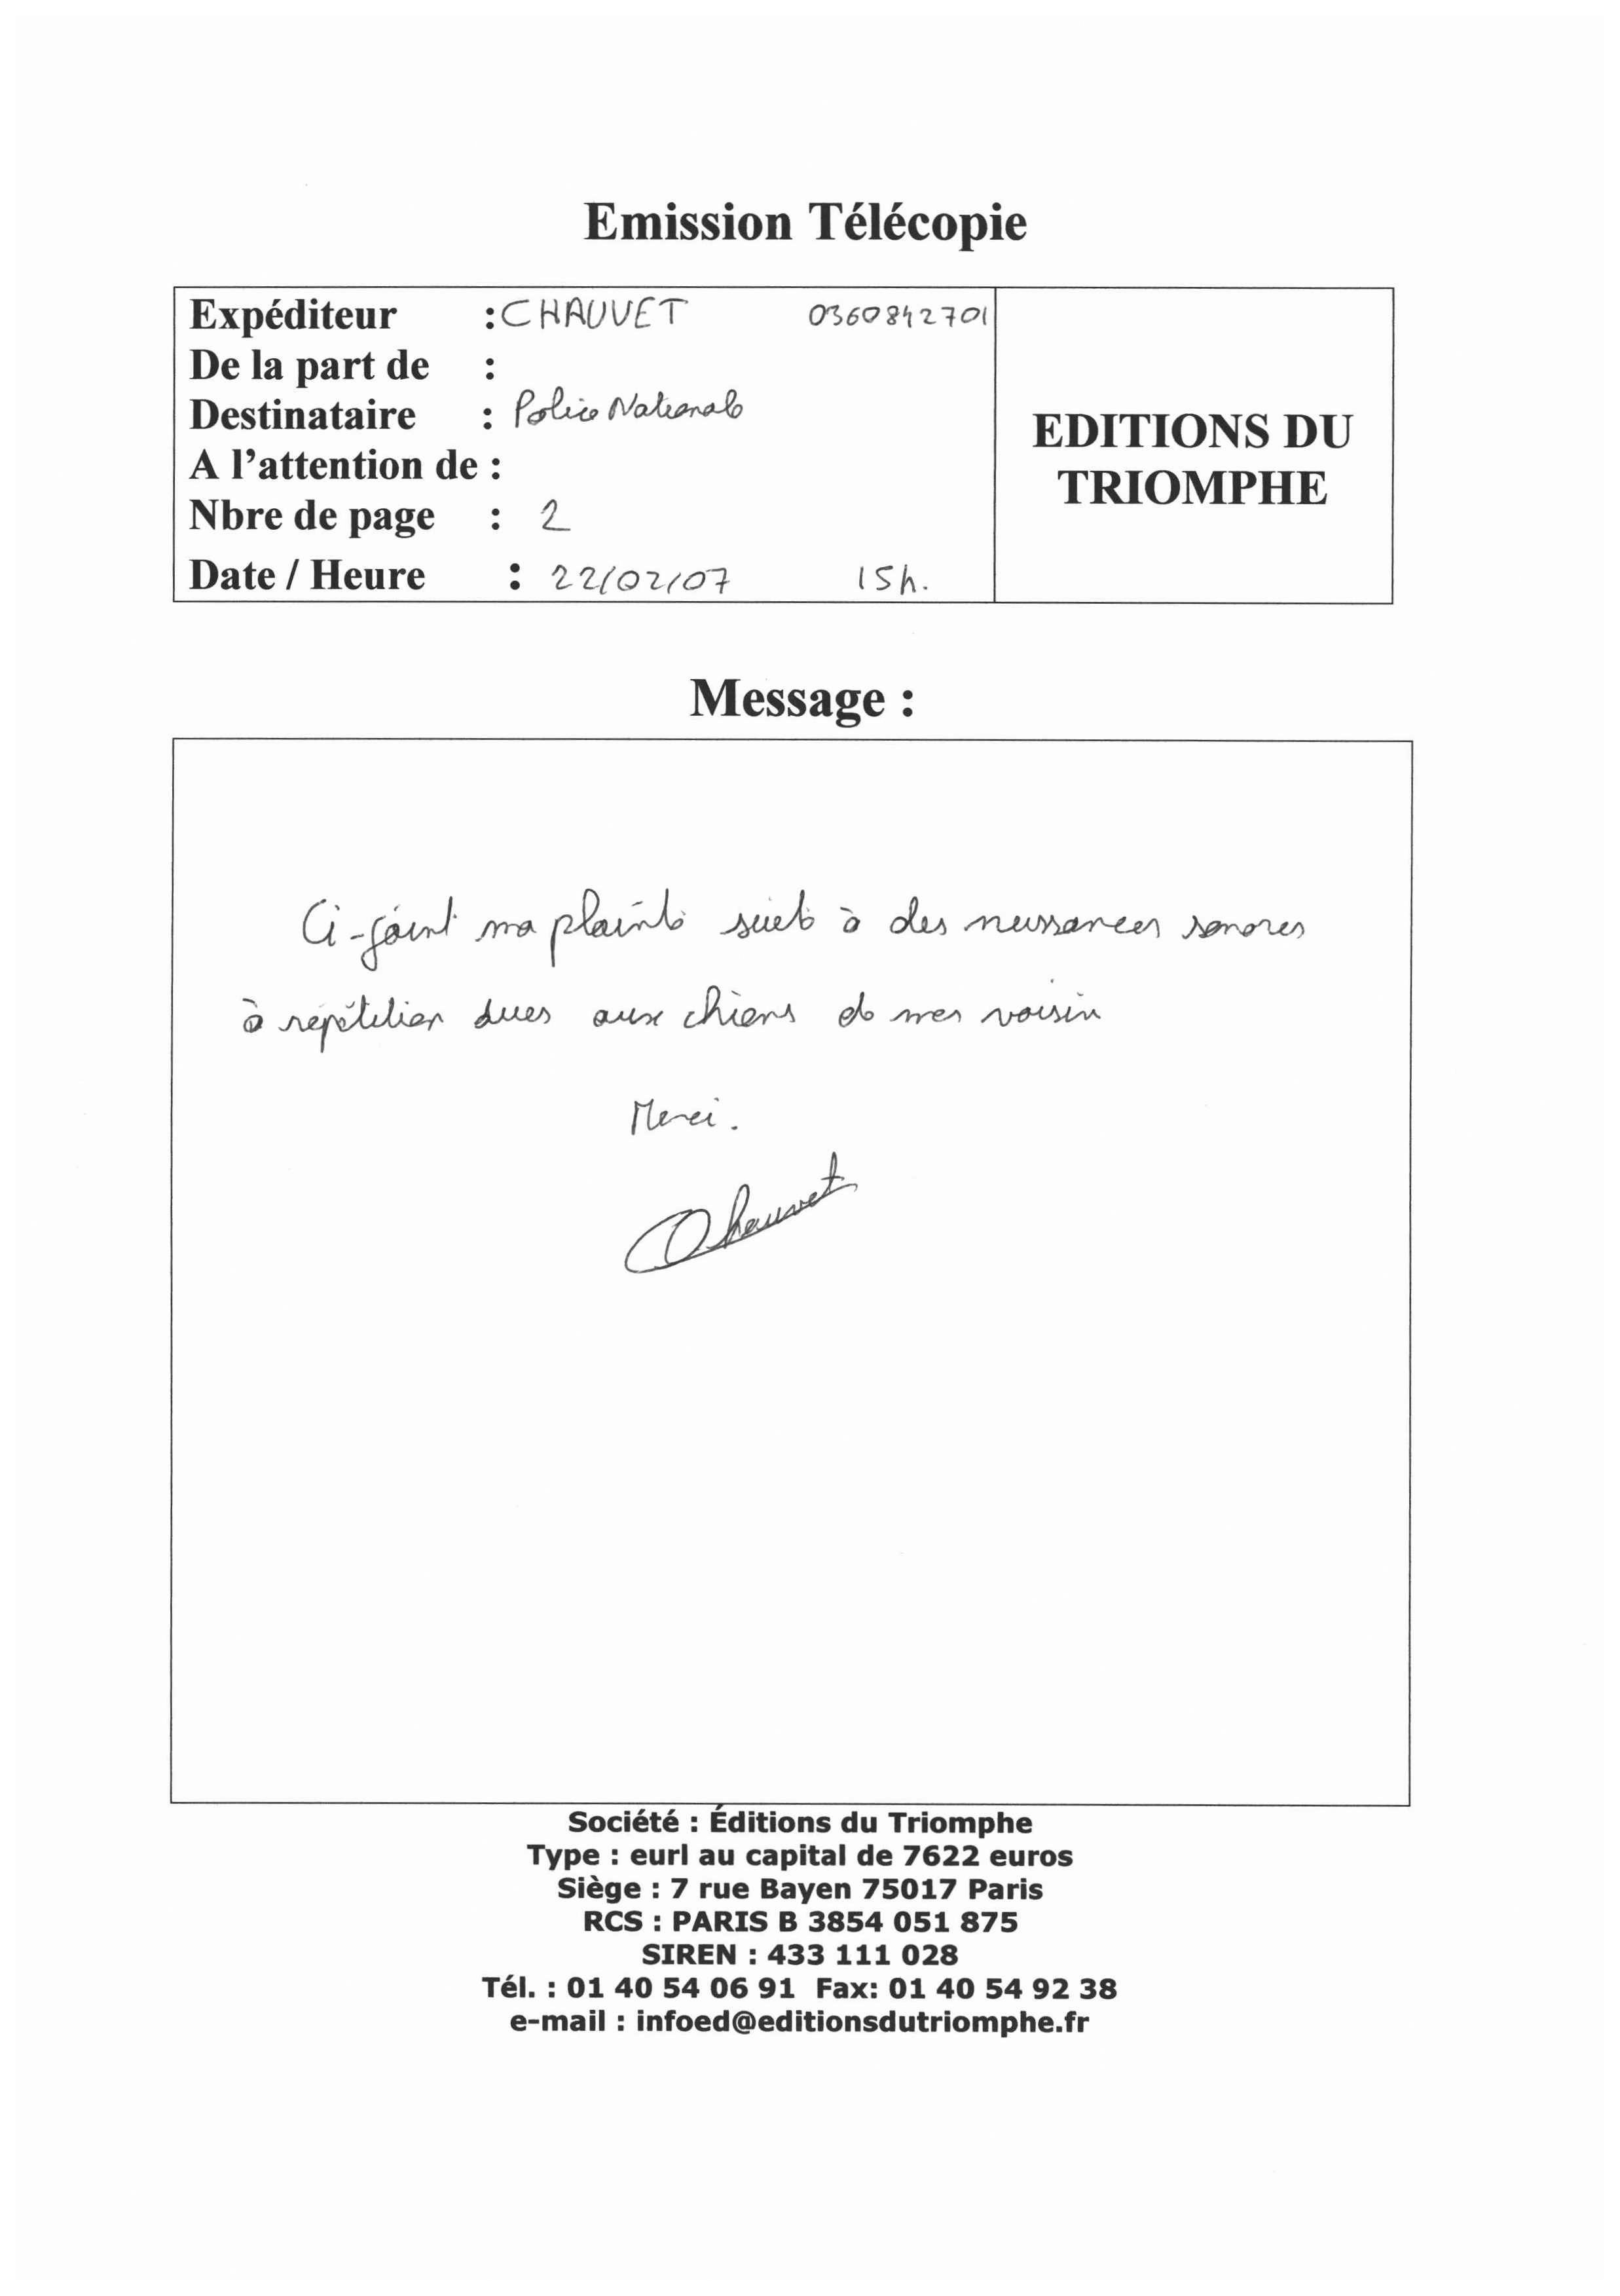 Emission Télécopie
Expéditeur : CHAUVET 0360842701
De la part de :
Destinataire : Police Nationale
A l'attention de :
Nbre de page : 2
Date / Heure : 22/02/07 15h.
EDITIONS DU
TRIOMPHE
Message :
Ci-joint ma plainte suite à des nuisances sonores
à répétition dues aux chiens de mes voisin
Merci.
Chauvet
Société : Éditions du Triomphe
Type : eurl au capital de 7622 euros
Siège : 7 rue Bayen 75017 Paris
RCS : PARIS B 3854 051 875
SIREN : 433 111 028
Tél. : 01 40 54 06 91 Fax: 01 40 54 92 38
e-mail : infoed@editionsdutriomphe.fr